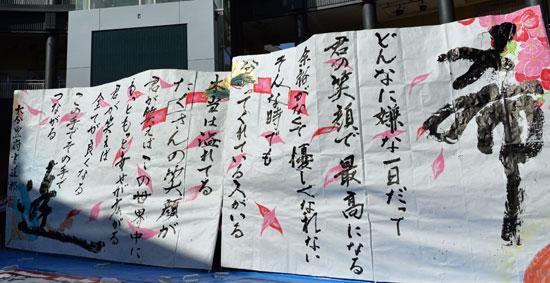 どんなに嫌な一日だって
君の笑顔で最高になる
余裕がなくて優しくなれない
そんな時でも
ってくれている人がいる
本当は溢れてる
たくさんの笑顔が
君が笑えばこの世界中に
もっともっと幸せが広がる
君が笑えば
全てが良くなる
この手でその手で
つながる